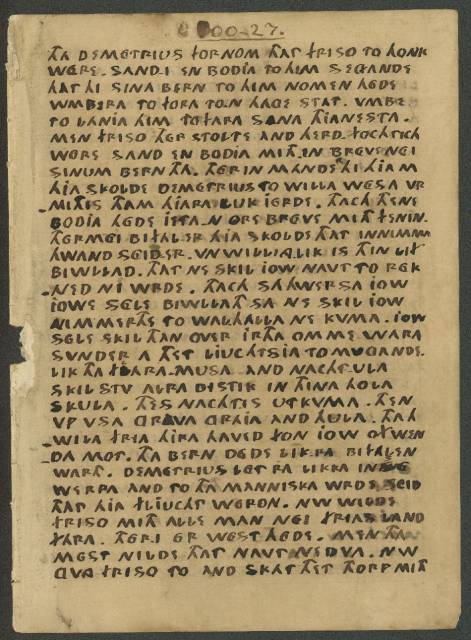 00-27.
THA DEMETRIUS FORNOM THAT FRISO TO HONK
WERE. SAND.I EN BODIA TO HIM SEGANDE
HATHI SINA BERN TO HIM NOMEN HEDE
VMBERA TO FORA TO.N HAGE STAT. VMBE
TO LANIA HIM TO FARA SINA THIANESTA.
MEN FRISO THER STOLTE AND HERD.FOCHTICH
WERE SAND EN BODIA MITH.IN BREVE NEI
SINUM BERN THA. THERIN MANDE HI HIA M
HIA SKOLDE DEMETRIUS TO WILLA WESA VR
MITHIS THAM HIARA LUK IERDE. THACH THENE
BODIA HEDE IETA.N ORE BREVE MITH FENIN.
THERMEI BIFAL.ER HIA SKOLDE THAT INNIMMA
HWAND SEIDER. VNWILLA.LIK IS THIN LIF
BIWLLAD. THAT NE SKIL IOW NAVT TO REK
NED NI WRDE. THACH SAHWERSA IOW
IOWE SELE BIWLLATH SA NE SKIL IOW
NIMMERTHE TO WALHALLA NE KVMA. IOW
SELE SKIL THAN OVER IRTHA OMME WARA
SVNDER A THET LIUCHT SIA TO MUGANDE.
LIK THA FLARA.MUSA AND NACHTULA
SKILSTV ALRA DISTIK IN THINA HOLA
SKULA. THES NACHTIS UTKVMA. THEN
VP VSA GRAVA GRAIA AND HULA. THAH
WILA FRIA HIRA HAVED FON IOW OFWEN
DA MOT. THA BERN DEDE LIK.RA BIFALEN
WARTH. DEMETRIUS LET RA LIKKA IN
WERPA AND TO THA MANNISKA WRDE SEID
THAT HIA FLIUCHT WERON. NW WILDE
FRISO MITH ALLE MAN NEI FRIAS.LAND
FARA. THERI ER WEST HEDE. MEN THA
MEST NILDE THAT NAVT NE DVA. NW
GVNG FRISO TO AND SKAT THET THORP MITH